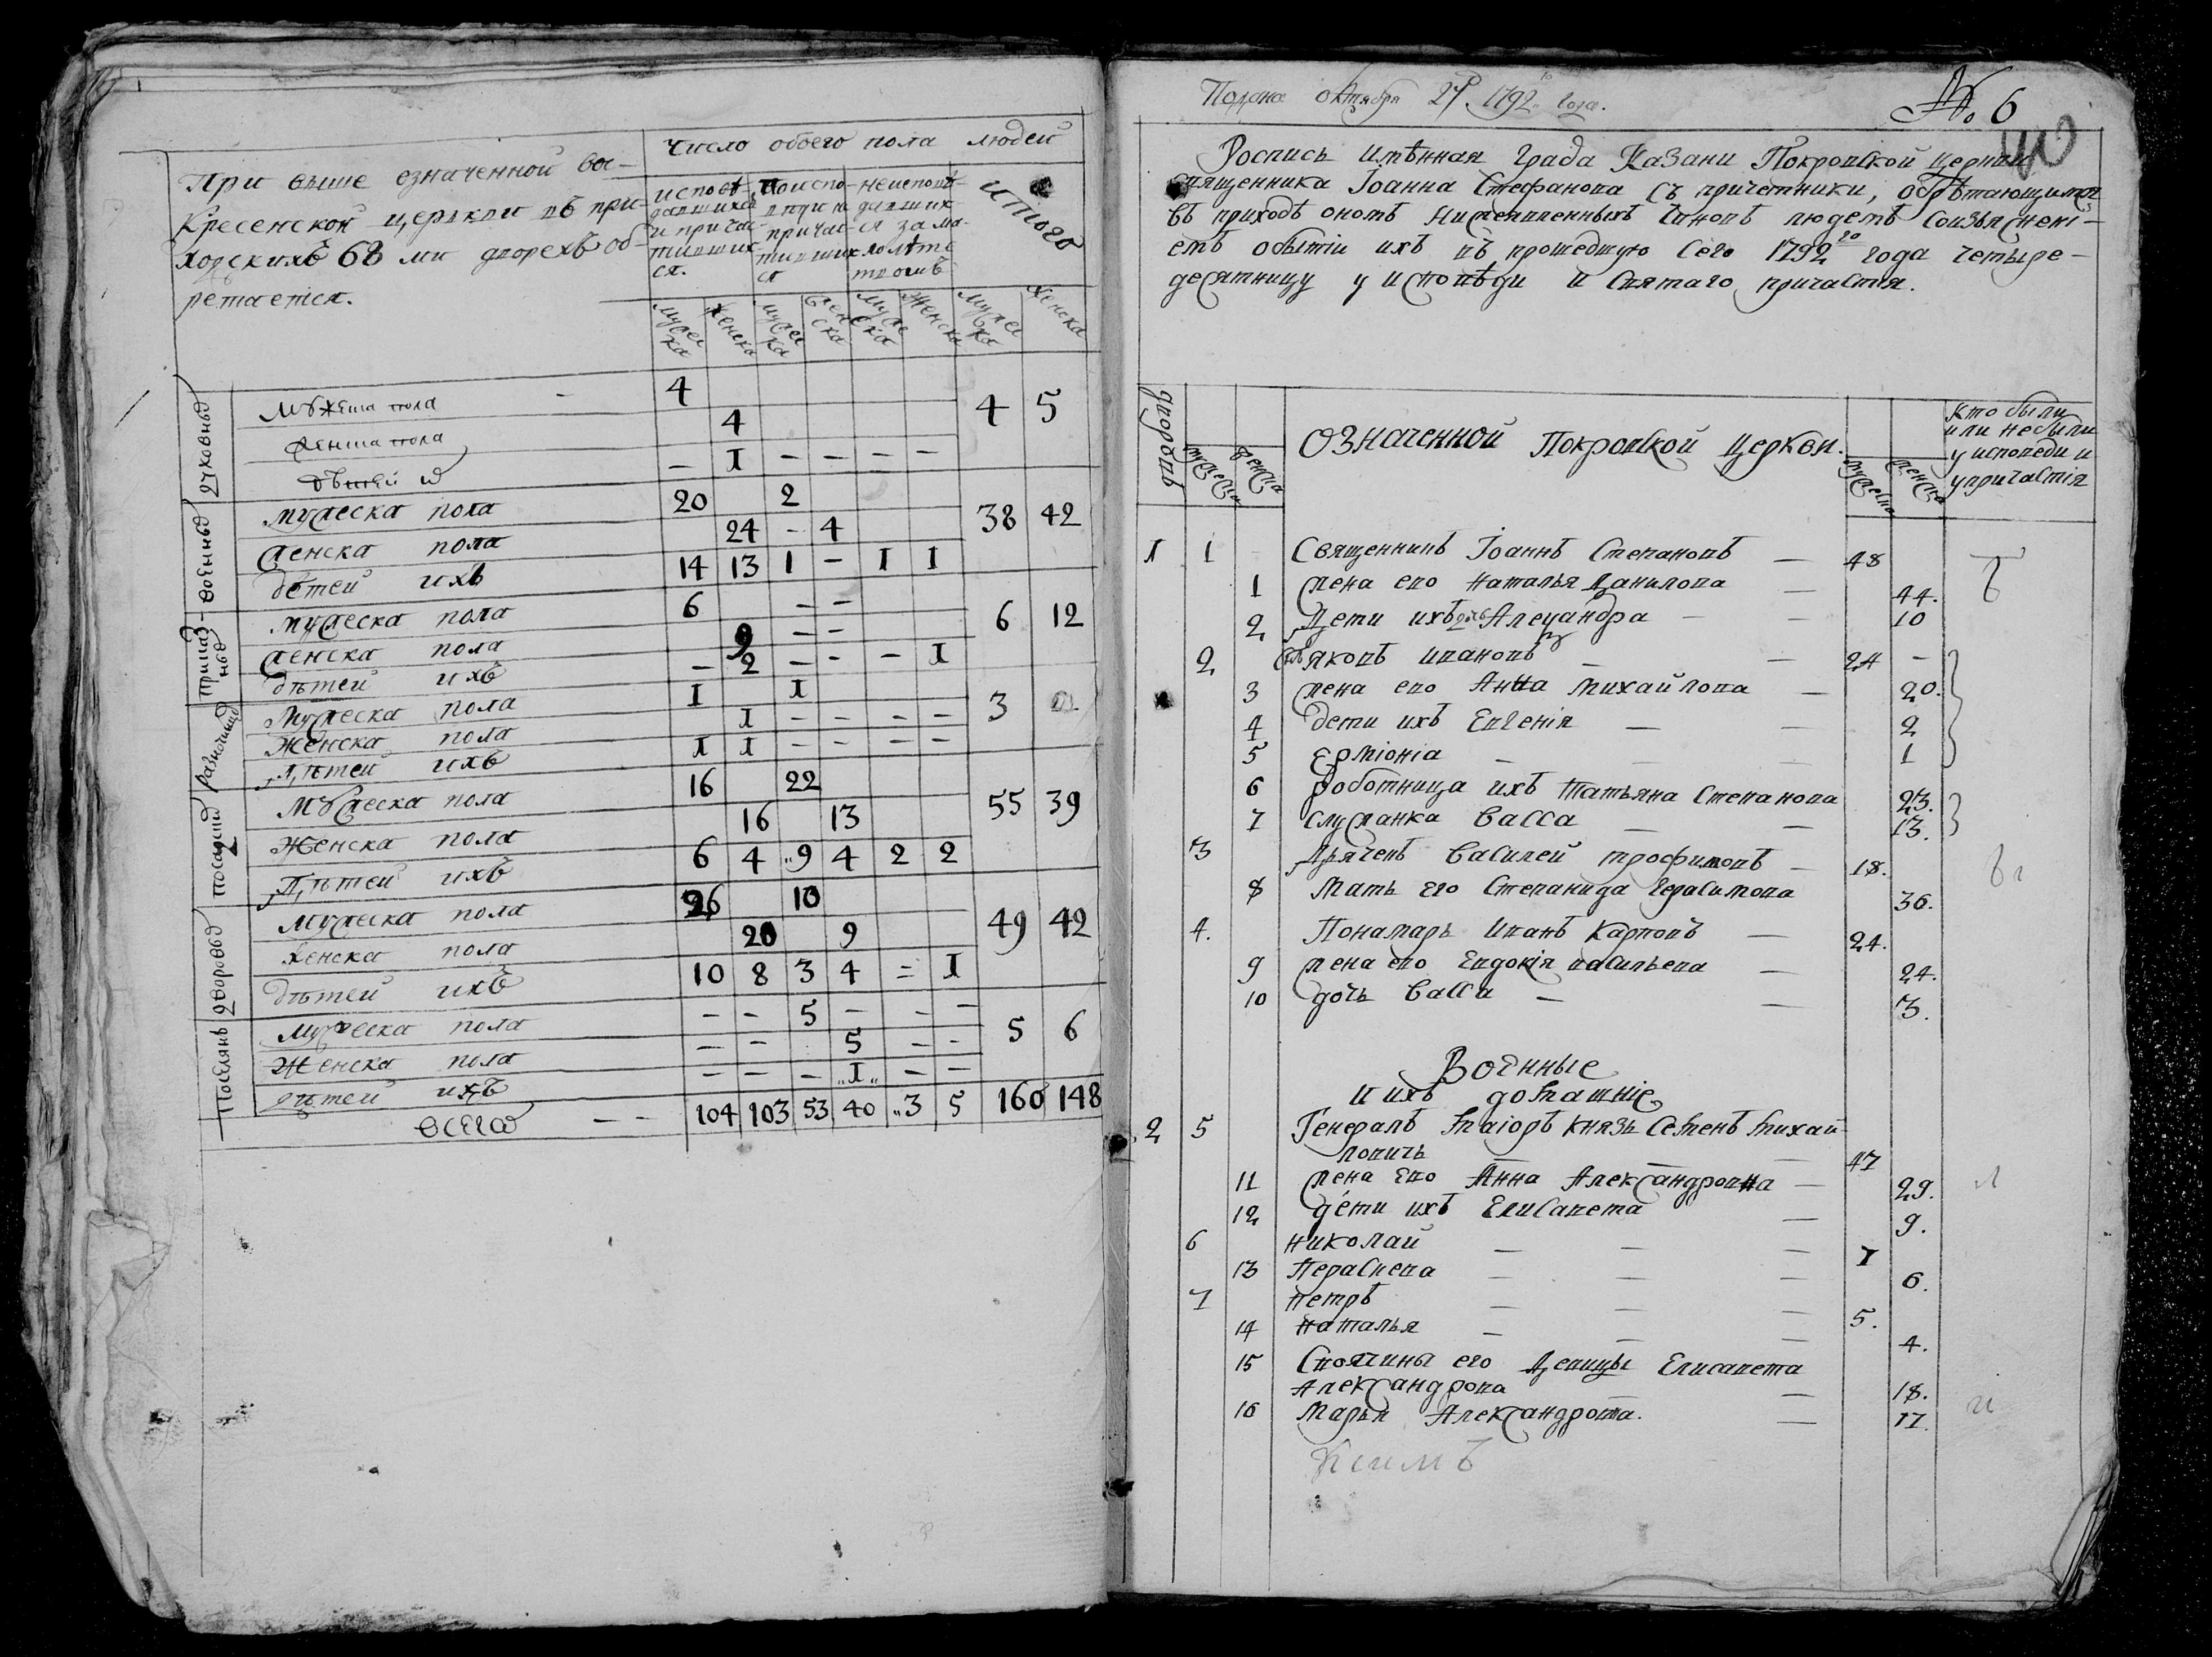 При выше означенной во-
Кресенской церькви въ при-
ходскихъ 68 ми дворехъ об-
ретается.
Число обоего пола людей
исповѣ-
давшихся
и причас-
тивших-
ся.
не причас-
тивших
ся
неисповѣ-
давших
ся за ма-
лолѣтс
твомъ
Итого
мужес
ка
женска
мужес
ка
женс
ка
муже
ска
женска
мужес
ка
женска
духовныхъ
мужеска пола - 4 4 5
женска пола 4
дѣтей - 1 - - - -
военныхъ
мужеска пола 20 2 38 42
женска пола 24 - 4
детей ихъ 14 13 1 - 1 1
приказ-
ныхъ
мужеска пола 6 - - 6 12
женска пола 9 - -
дѣтей ихъ - 2 - - - 1
разночинцовъ
Мужеска пола 1 1 3
Женска пола 1 - - - -
Дѣтей ихъ 1 1 - - - -
посадскихъ
Мужеска пола 16 22 55 39
Женска пола 16 13
Дѣтей ихъ 6 4 9 4 2 2
дворовыхъ
мужеска пола 26 10 49 42
женска пола 20 9
дѣтей ихъ 10 8 3 4 = 1
поселянъ
мужеска пола - - 5 - - - 5 6
Женска пола - - 5 - -
дѣтей ихъ - - - 1 - -
всего - - 104 103 53 40 3 5 160 148
Подана октября 27 1792 года.
№ 6
40
Роспись имѣнная града Казани Покровской церкви
священника Іоанна Стефанова съ причетники, обрѣтающимся
въ приходѣ ономъ нижеявленныхъ чиновъ людемъ соизъяснені-
емъ обытіи ихъ въ прошедшую сего 1792 го года четыре-
десятницу у исповѣди и святаго причастія.
дворовъ
мужеска
женска
Означенной Покровской Церкви.
мужеска
женска
кто были
или небыли
у исповеди и
у причастія
1 1 Священникъ Іоаннъ Степановъ — 48
1 жена его Наталья Данилова — 44.
2 Дети ихъ дочь Александра — 10
2 Яковъ Ивановъ — 24 -
3 жена его Анна Михайлова — 20.
4 дети ихъ Евгенія — 2
5 Ерміоніа — 1
6 работница ихъ Татьяна Степанова 23.
7 служанка Васса — 13.
3 Дьячекъ Василей Трофимовъ — 18.
8 Мать его Степанида Герасимова 36.
4. Понамарь Иванъ Карповъ — 24.
9 жена его Евдокія васильева — 24.
10 дочь Васса — 3.
Военные
и ихъ домашніе
2 5 Генералъ Маіоръ Князь Семенъ Михай-
ловичь — 47
11 жена его Анна Александровна — 29.
12 дети ихъ Елисавета — 9.
6 Николай — 1
13 Парасцева — 6.
7 Петръ — 5.
14 Наталья — 4.
15 Своячины его Девицы Елисавета
Александрова — 18.
16 Марья Александрова. — 17.